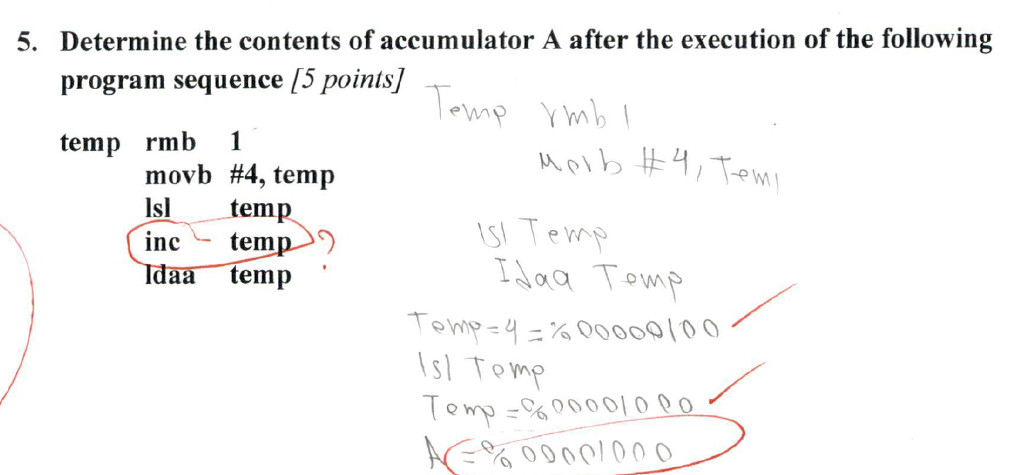 5. Determine the contents of accumulator A after the execution of the following
program sequence [5 points]
temp rmb 1
movb #4, temp
lsl temp
inc temp ?
ldaa temp
Temp rmb 1
Movb #4, Tem
lsl Temp
Idaa Temp
Temp = 4 = %00000100
lsl Temp
Temp = %00001000
A = %00001000